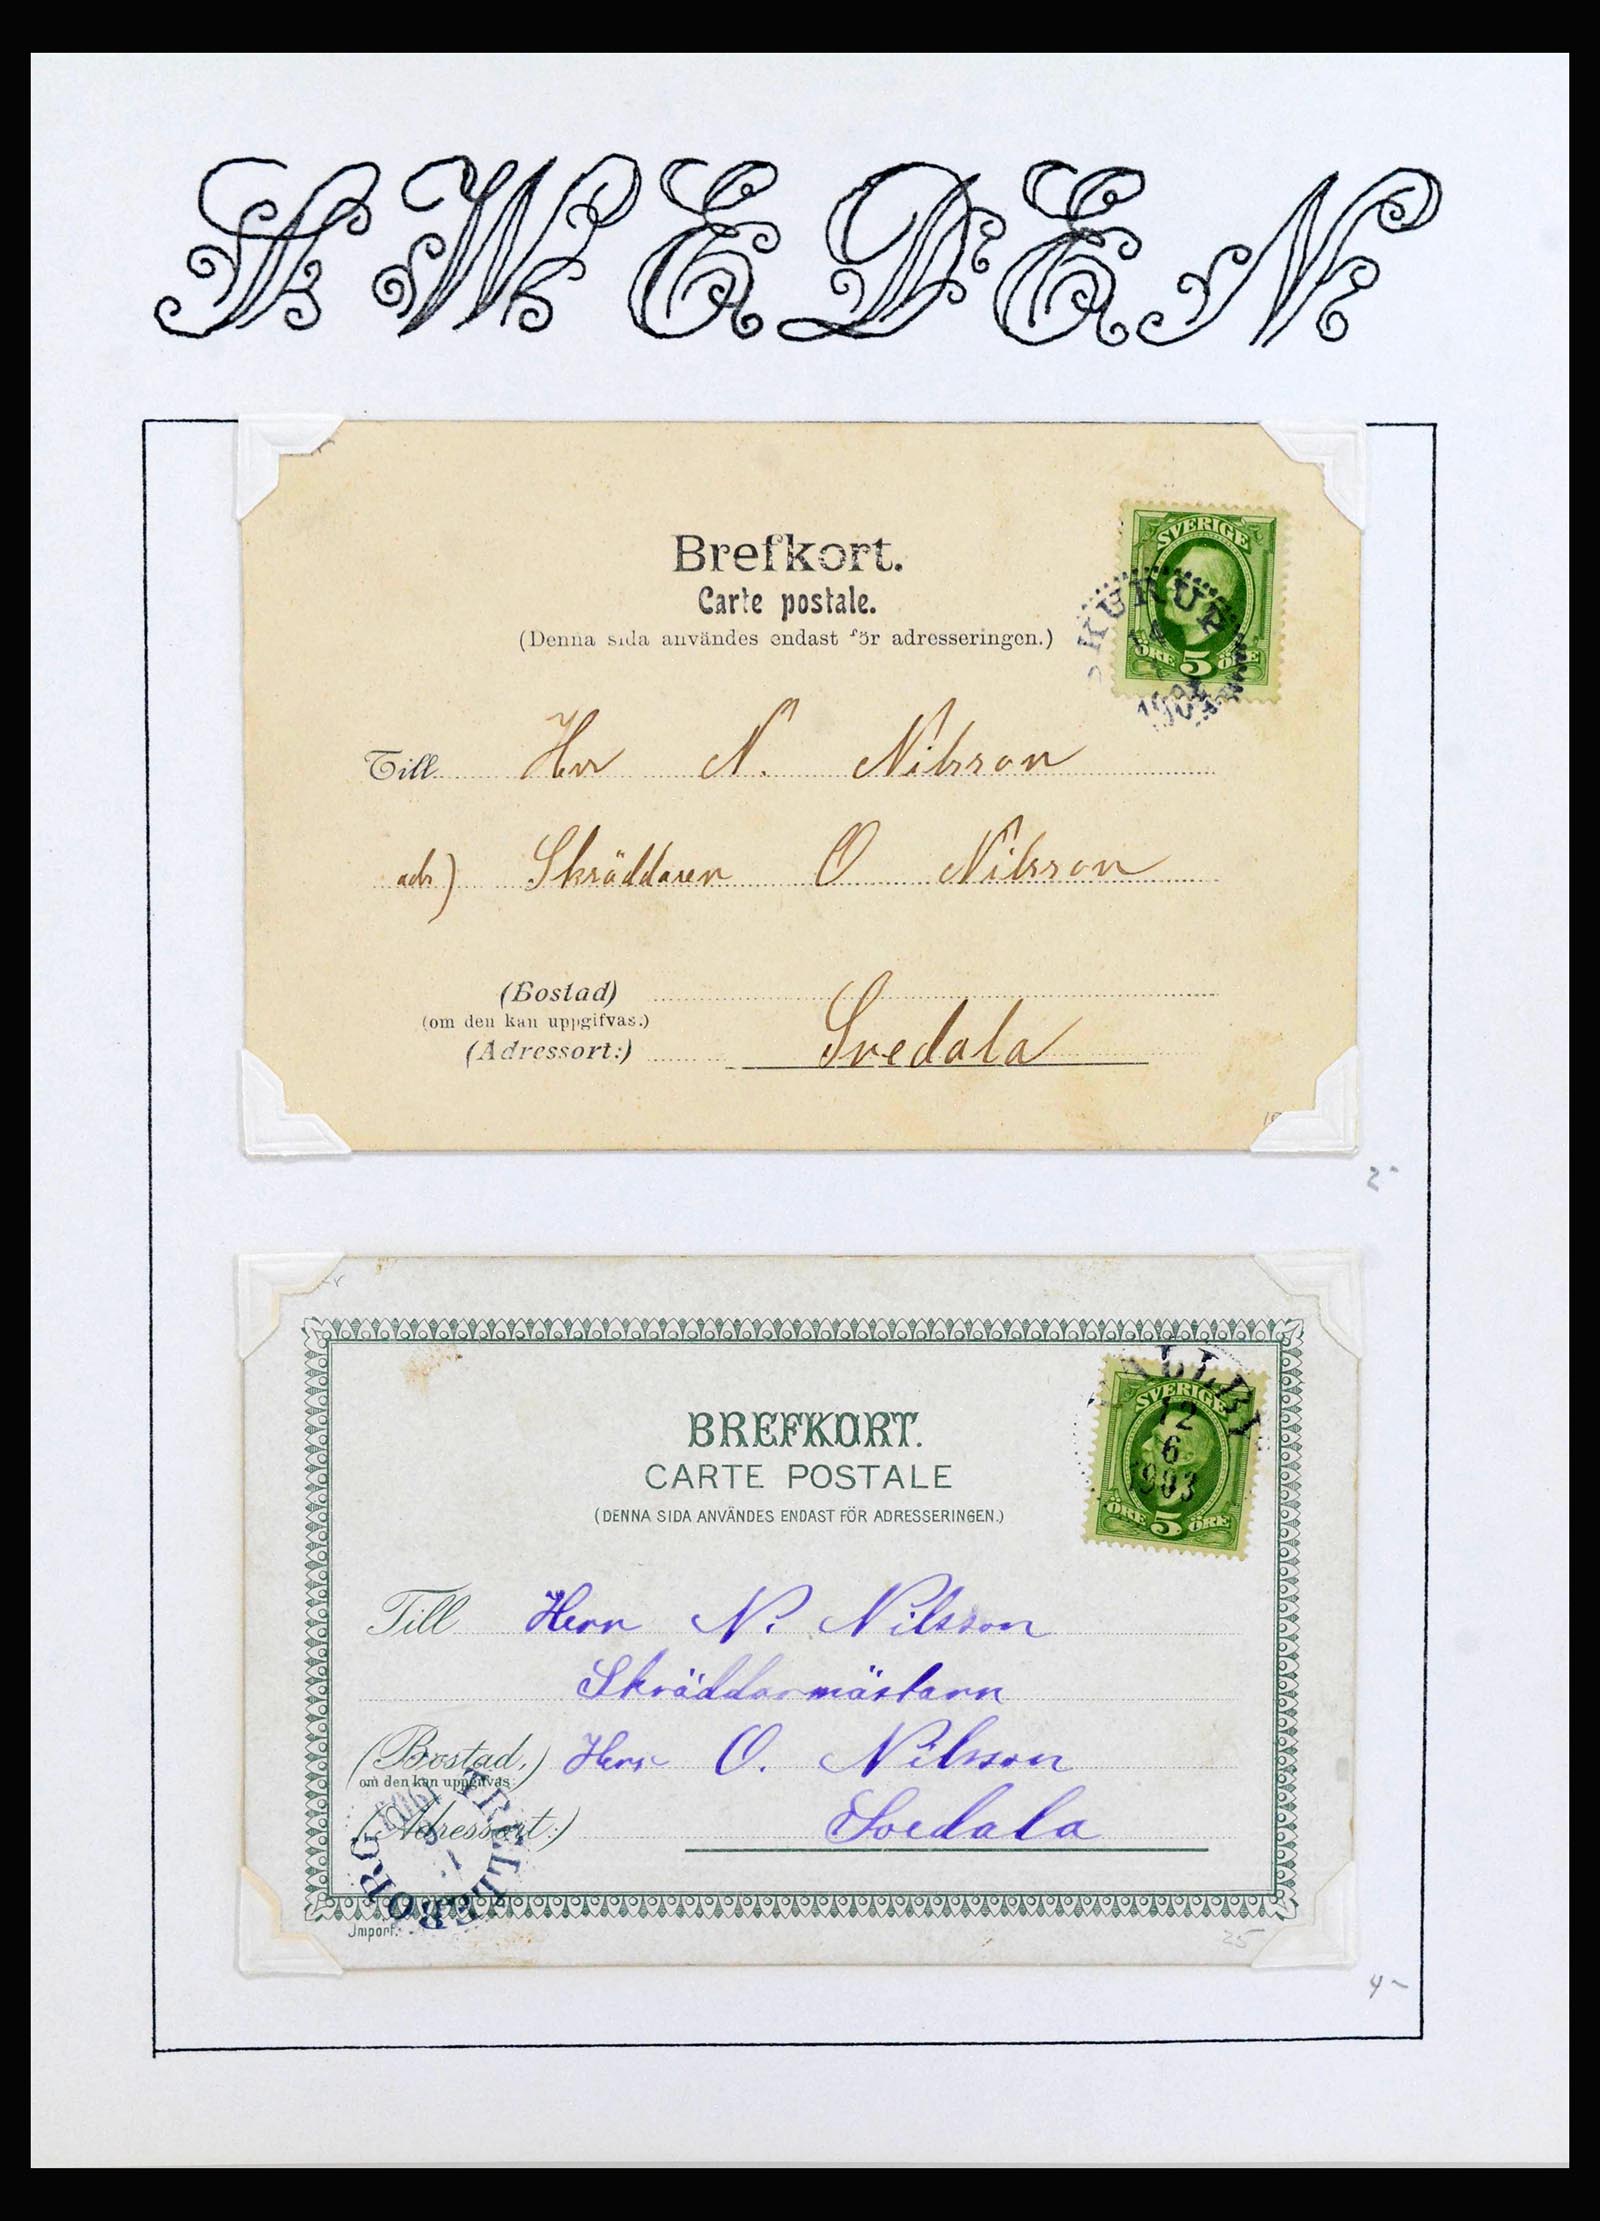 SWEDEN
Brefkort.
Carte postale.
(Denna sida användes endast för adresseringen.)
SVERIGE
ÖRE 5 ÖRE
Till Herr N. Nilsson
adr) Skräddaren O Nilsson
(Bostad)
(om den kan uppgifvas.)
(Adressort:) Svedala
2-
BREFKORT.
CARTE POSTALE
(DENNA SIDA ANVÄNDES ENDAST FÖR ADRESSERINGEN.)
SVERIGE
12
6
1903
ÖRE 5 ÖRE
Till Herr N. Nilsson
Skräddarmästarn
(Bostad,) Herr O. Nilsson
om den kan uppgifvas:
(Adressort:) Svedala
TRELLEBORG
Import.
25
4-